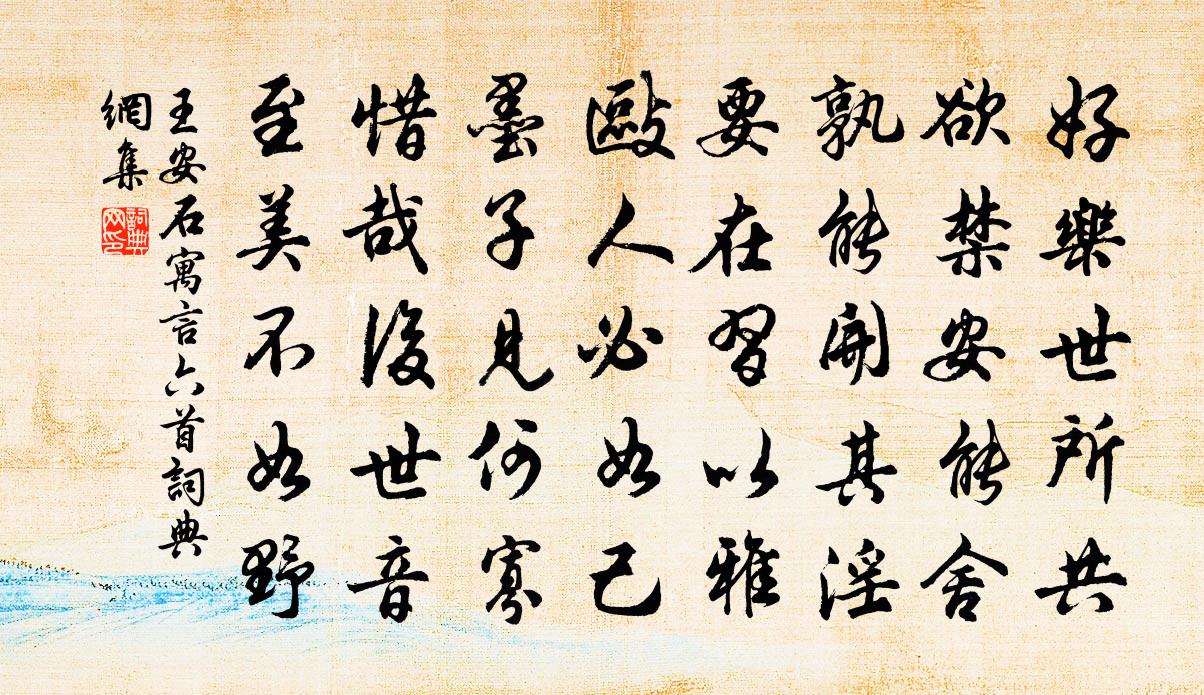 好樂世所共
欲禁安能舍
孰能開其淫
要在習以雅
毆人必如己
墨子見何寡
惜哉後世音
至美不如野
王安石寓言六首詞典
網集
詞典
网印